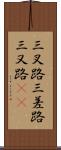 三叉路三差路
三又路